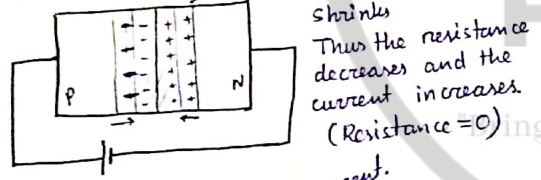 shrinks
Thus the resistance
decreases and the
current increases.
(Resistance = 0)
P
N